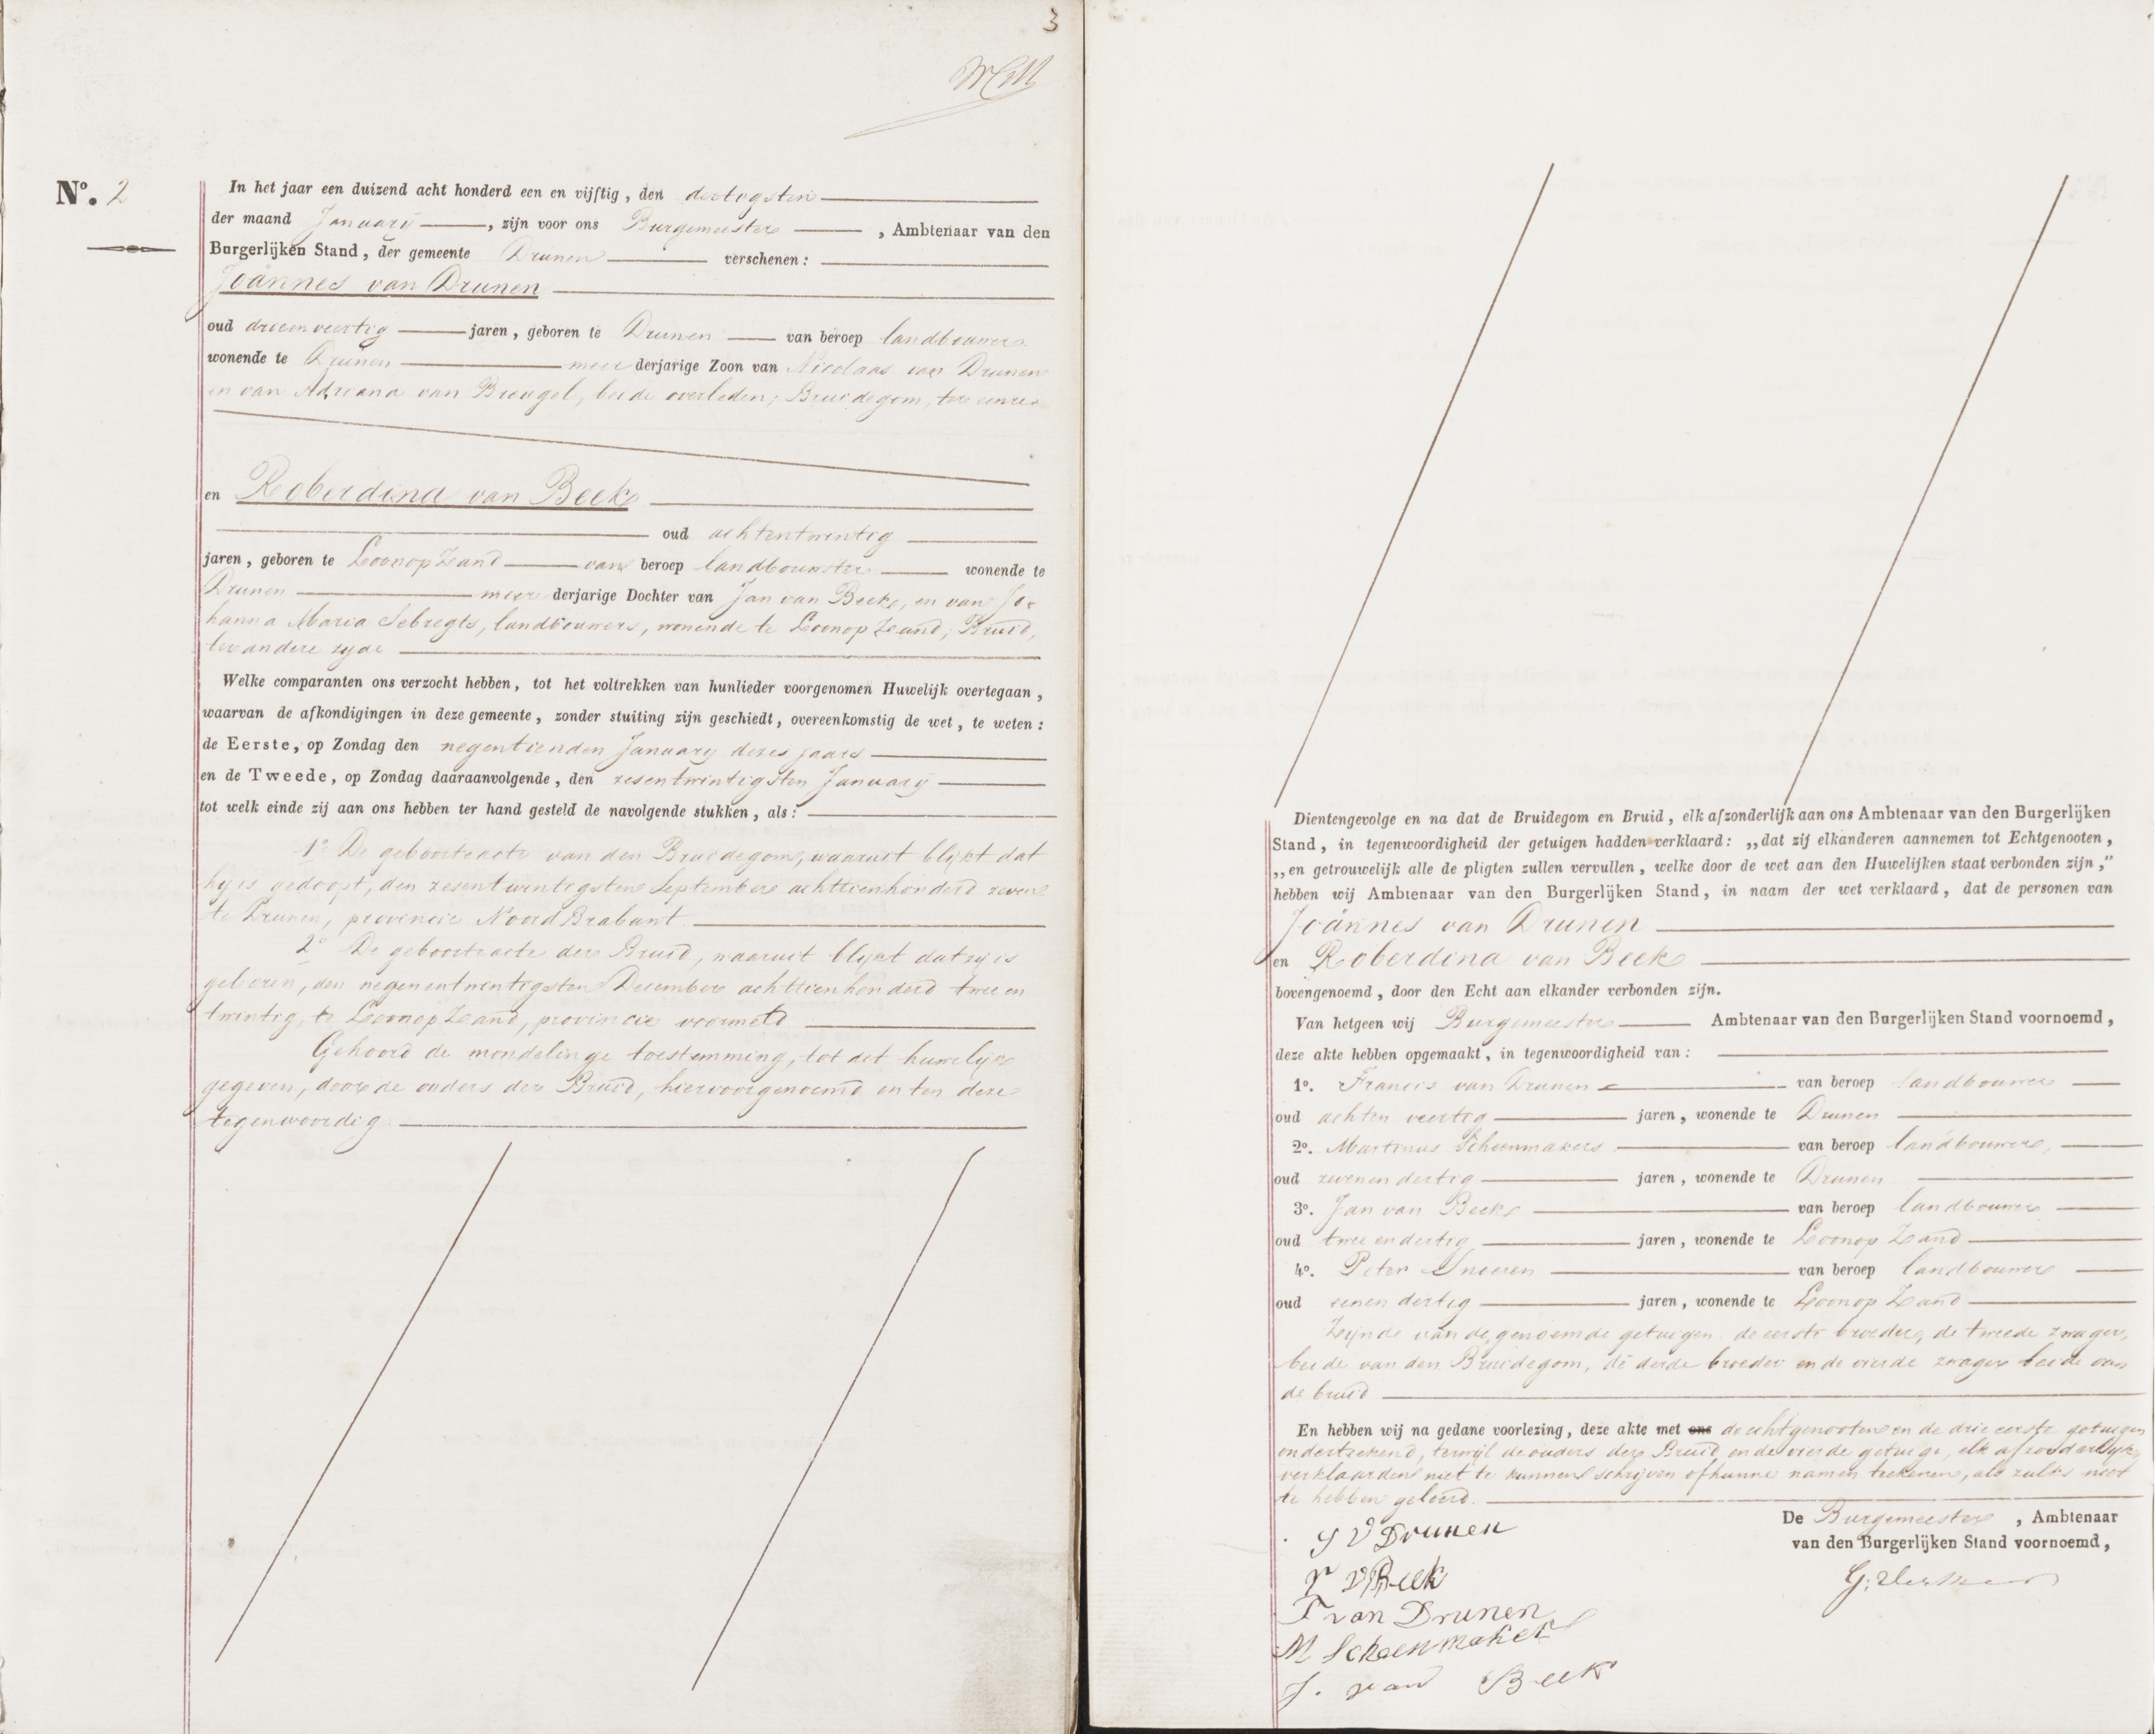 3
N°. 2
In het jaar een duizend acht honderd een en vijftig, den dertigsten
der maand January, zijn voor ons Burgemeester, Ambtenaar van den
Burgerlijken Stand, der gemeente Drunen verschenen:
Joännes van Drunen
oud drieenveertig jaren, geboren te Drunen van beroep landbouwer
wonende te Drunen meer derjarige Zoon van Nicolaas van Drunen
en van Adriana van Breugel, beide overleden; Bruidegom, ter eenre
en Roberdina van Beek
oud achtentwintig
jaren, geboren te Loonopzand van beroep landbouwster wonende te
Drunen meer derjarige Dochter van Jan van Beek, en van Jo-
hanna Maria Sebregts, landbouwers, wonende te Loonopzand; Bruid,
ter andere zyde
Welke comparanten ons verzocht hebben, tot het voltrekken van hunlieder voorgenomen Huwelijk overtegaan,
waarvan de afkondigingen in deze gemeente, zonder stuiting zijn geschiedt, overeenkomstig de wet, te weten:
de Eerste, op Zondag den negentienden January dezes jaars
en de Tweede, op Zondag daaraanvolgende, den zesentwintigsten January
tot welk einde zij aan ons hebben ter hand gesteld de navolgende stukken, als:
1° De geboorteacte van den Bruidegom, waaruit blykt dat
hy is gedoopt, den zesentwintigsten September achttienhonderd zeven
te Drunen, provincie Noord Brabant
2° De geboorteacte der Bruid, waaruit blykt dat zy is
geboren, den negenentwintigsten December achttienhonderd twee en
twintig, te Loonopzand, provincie voormeld
Gehoord de mondelinge toestemming, tot dit huwelijk
gegeven, door de ouders der Bruid, hiervoorgenoemd en ten deze
tegenwoordig
Dientengevolge en na dat de Bruidegom en Bruid, elk afzonderlijk aan ons Ambtenaar van den Burgerlijken
Stand, in tegenwoordigheid der getuigen hadden verklaard: „dat zij elkanderen aannemen tot Echtgenooten,
„en getrouwelijk alle de pligten zullen vervullen, welke door de wet aan den Huwelijken staat verbonden zijn,”
hebben wij Ambtenaar van den Burgerlijken Stand, in naam der wet verklaard, dat de personen van
Joännes van Drunen
en Roberdina van Beek
bovengenoemd, door den Echt aan elkander verbonden zijn.
Van hetgeen wij Burgemeester Ambtenaar van den Burgerlijken Stand voornoemd,
deze akte hebben opgemaakt, in tegenwoordigheid van:
1°. Francis van Drunen van beroep landbouwer
oud achten veertig jaren, wonende te Drunen
2°. Martinus Schoenmakers van beroep landbouwer,
oud zevenendertig jaren, wonende te Drunen
3°. Jan van Beek van beroep landbouwer
oud twee endertig jaren, wonende te Loonop Zand
4°. Peter van beroep landbouwer
oud eenen dertig jaren, wonende te Loonop Zand
Zijnde van de genoemde getuigen de eerste broeder, de tweede zwager,
beide van den Bruidegom, de derde broeder en de vierde zwager beide van
de bruid
En hebben wij na gedane voorlezing, deze akte met ons de echtgenooten en de drie eerste getuigen
onderteekend, terwijl de ouders der Bruid, en de vierde getuige, elk afzonderlyk
verklaarden niet te kunnen schrijven of hunne namen teekenen, als zulks nooit
te hebben geleerd.
De Burgemeester, Ambtenaar
van den Burgerlijken Stand voornoemd,
J V Drunen
r v Beek
F van Drunen
M Schoenmakers
J. van Beek